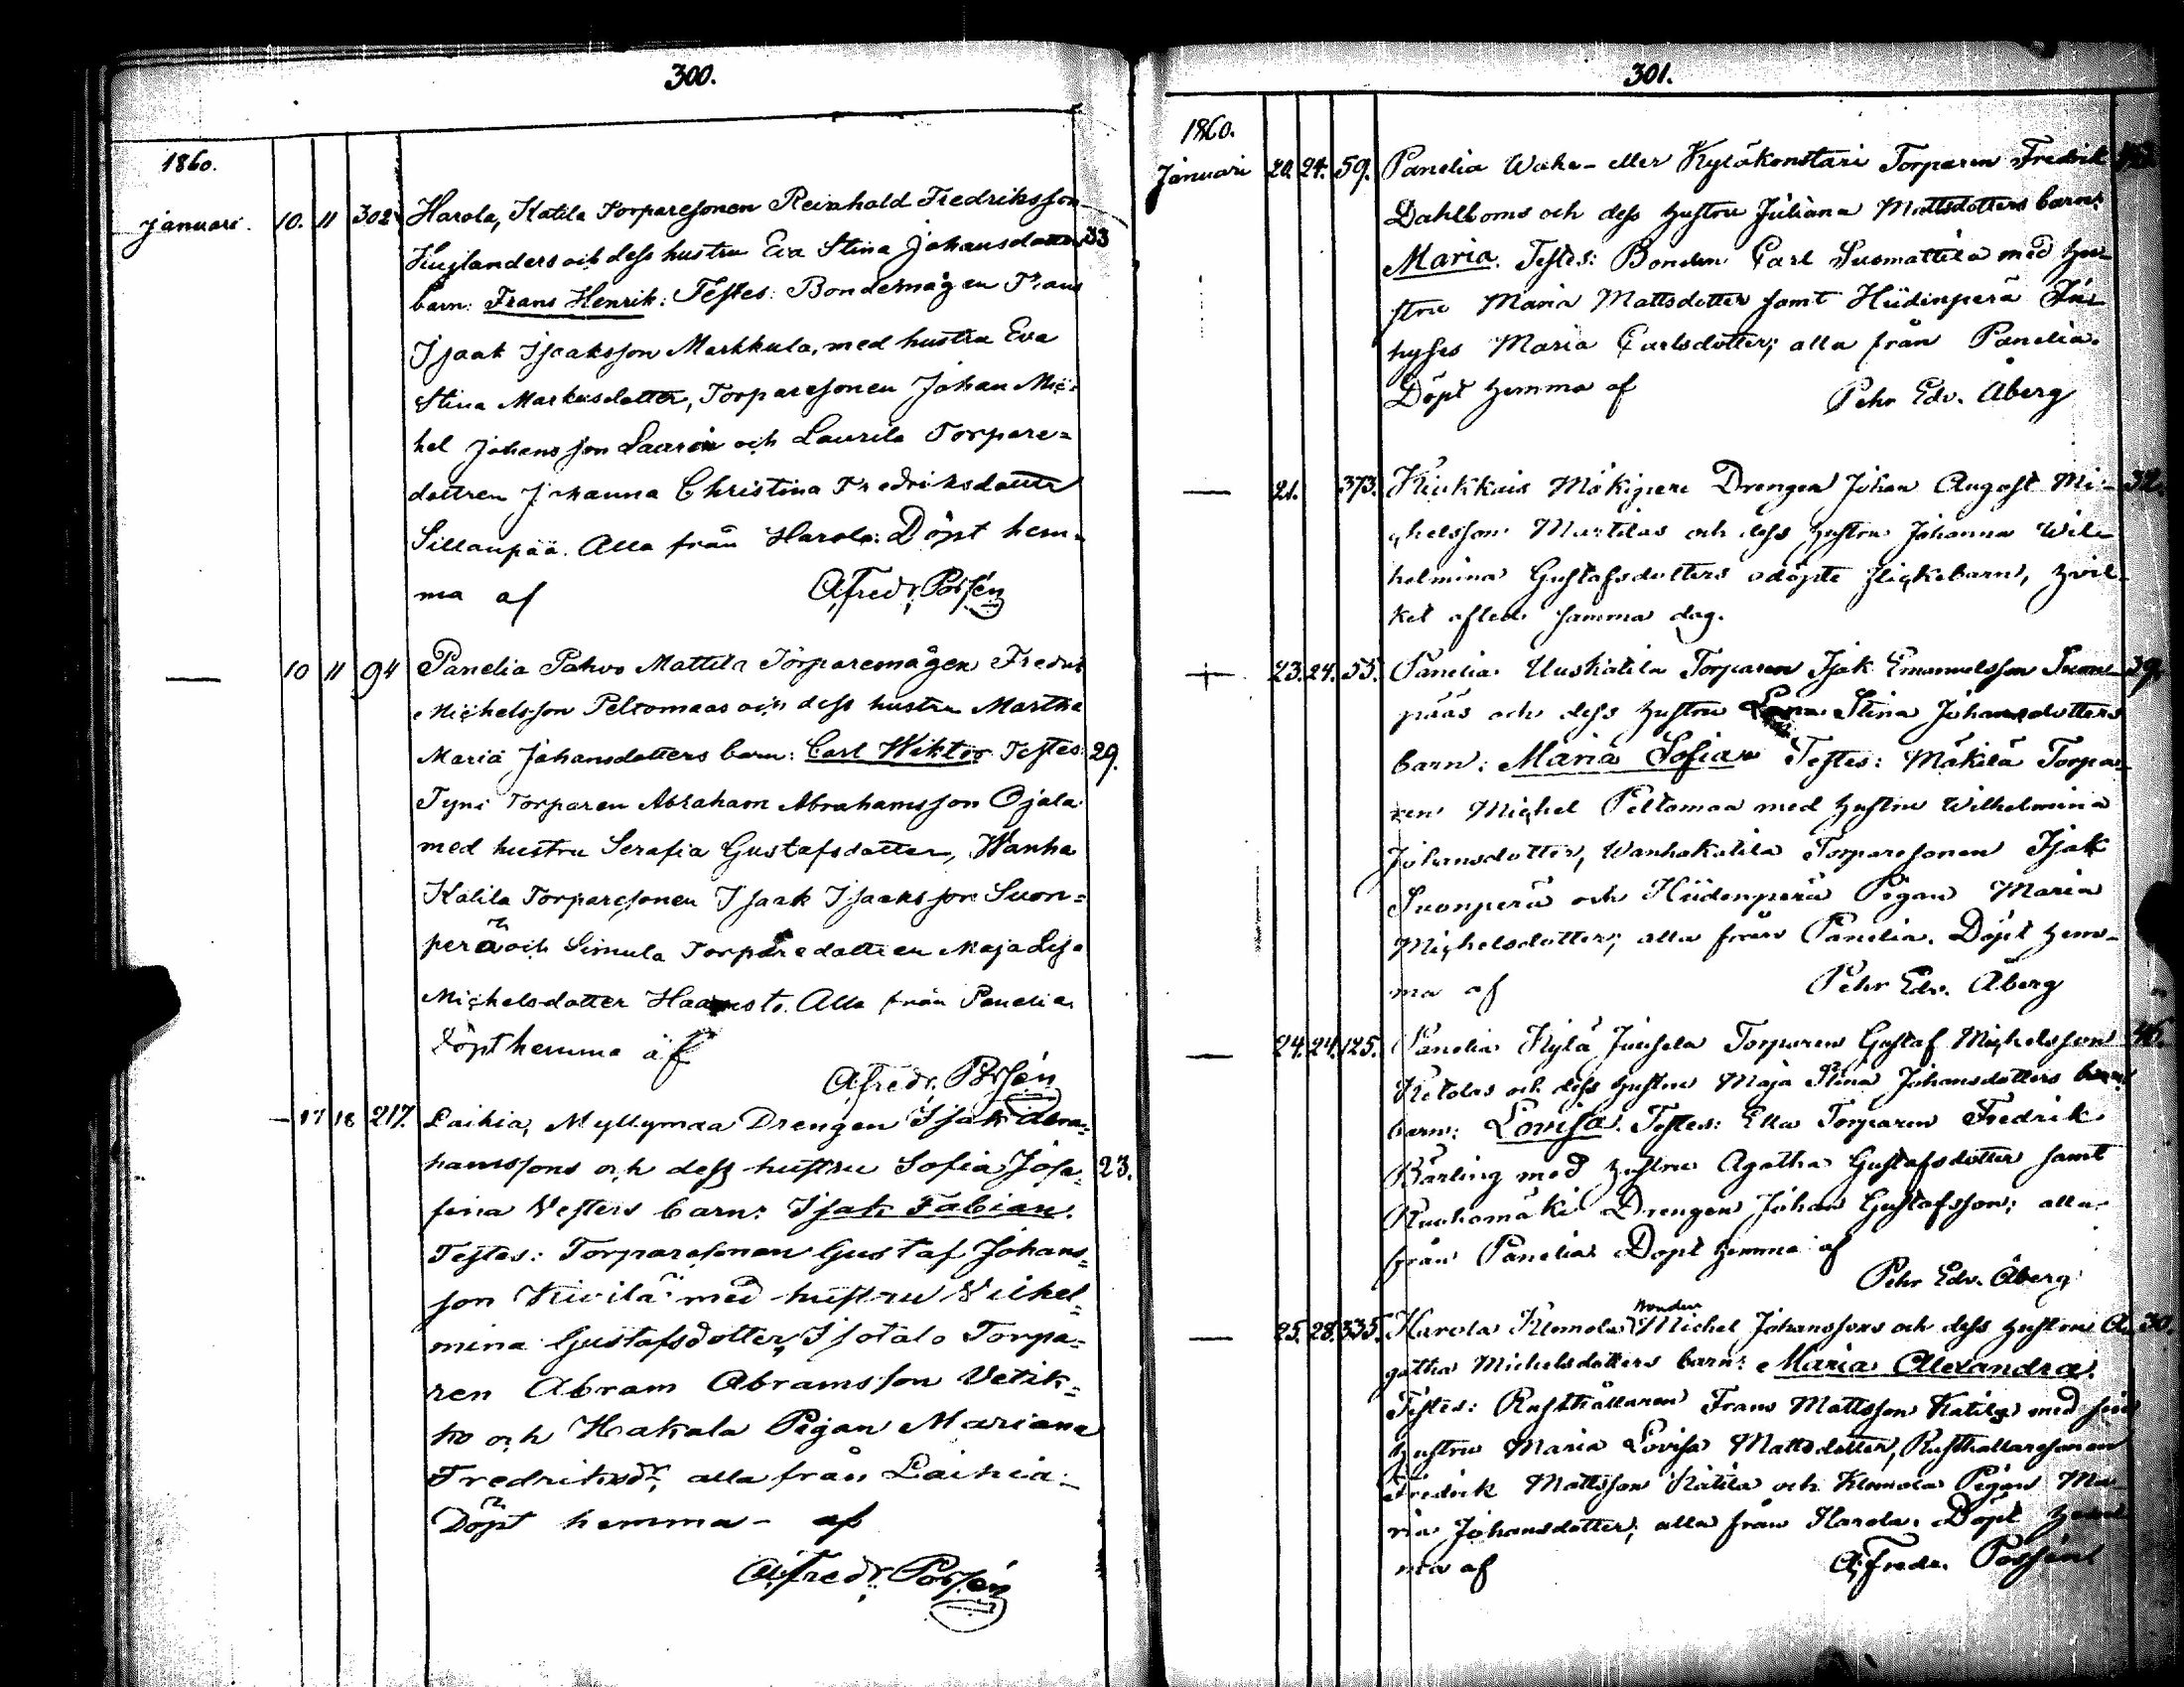 300.
1860.
Januari. 10. 11 302 Harola, Katila Torparesonen Reinhold Fredriksson
Huglanders och dess hustru Eva Stina Johansdotters 33
barn: Frans Henrik: Testes: Bondemågen Frans
Isaak Isaaksson Markkula, med hustru Eva
Stina Markusdotter, Torparesonen Johan Mic=
hel Johansson Saarin och Laurila Torpare=
dottren Johanna Christina Fredriksdotter
Sillanpää. Alla från Harola: Döpt hem=
ma af Alfred Porsén
— 10 11 94 Panelia Pahvo Mattila Torparemågen Fredrik
Michelsson Peltomaas och dess hustru Martha
Maria Johansdotters barn: Carl Wiktor Testes: 29.
Tyni Torparen Abraham Abrahamsson Ojala
med hustru Serafia Gustafsdotter, Wanha
Katila Torparesonen Isaak Isaaksson Suon=
perä och Simula Torparedottren Maja Lisa
Michelsdotter Haavisto. Alla från Panelia.
Döpt hemma af
Alfred Porsén
— 17 18 217. Laihia, Myllymaa Drengen Isak Abra=
hamssons och dess hustru Sofia Josa= 23.
fina Vesters barn: Isak Fabian.
Testes: Torparesonen Gustaf Johans=
son Kivilä med hustru Vilhel=
mina Gustafsdotter, Isotalo Torpa=
ren Abram Abramsson Vetik=
ko och Hakala Pigan Mariana
Fredriksdr; alla från Laihia:
Döpt hemma - af
Alfred Porsén
301.
1860.
Januari 20. 24. 59. Panelia Waha- eller Kyläkonstari Torparen Fredrik
Dahlboms och dess hustru Juliana Mattsdotters barn:
Maria. Testes: Bonden Carl Suomattila med hu=
stru Maria Mattsdotter samt Hiidenperä In=
hyses Maria Carlsdotter; alla från Panelia.
Döpt hemma af Pehr Edv. Åberg
— 21. 373. Kiukkais Mäkipere Drengen Johan August Mi- 32.
chelsson Marttilas och dess hustru Johanna Wil=
helmina Gustafsdotters odöpte flickebarn, hvil=
ket afled samma dag.
+ 23. 24. 55. Panelia Uuskatila Torparen Isak Emanuelsson Suon= 39.
pääs och dess hustru Stina Johansdotters
barn: Maria Sofia Testes: Mäkilä Torpa=
ren Michel Peltomaa med hustru Wilhelmina
Johansdotter, Wanhakatila Torparesonen Isak
Suonperä och Hiidenperä Pigan Maria
Michelsdotter; alla från Panelia. Döpt hem=
ma af Pehr Edv. Åberg
— 24. 24. 125. Panelia Kylä Juusela Torparen Gustaf Michelsson
Ketolas och dess hustru Maja Stina Johansdotters
barn: Lovisa. Testes: Ella Torparen Fredrik
Bärling med hustru Agatha Gustafsdotter samt
Ruohomäki Drengen Johan Gustafsson; alla
från Panelia. Döpt hemma af
Pehr Edv. Åberg
— 25. 28. 335. Harola Klemola Bonden Michel Johanssons och dess hustru A= 30.
gatha Michelsdotters barn: Maria Alexandra.
Testes: Rusthållaren Frans Mattsson Katila med sin
hustru Maria Lovisa Mattsdotter, Rusthållaresonen
Fredrik Mattsson Katila och Klemola Pigan Ma=
ria Johansdotter; alla från Harola. Döpt hem=
ma af Alfred Porsén